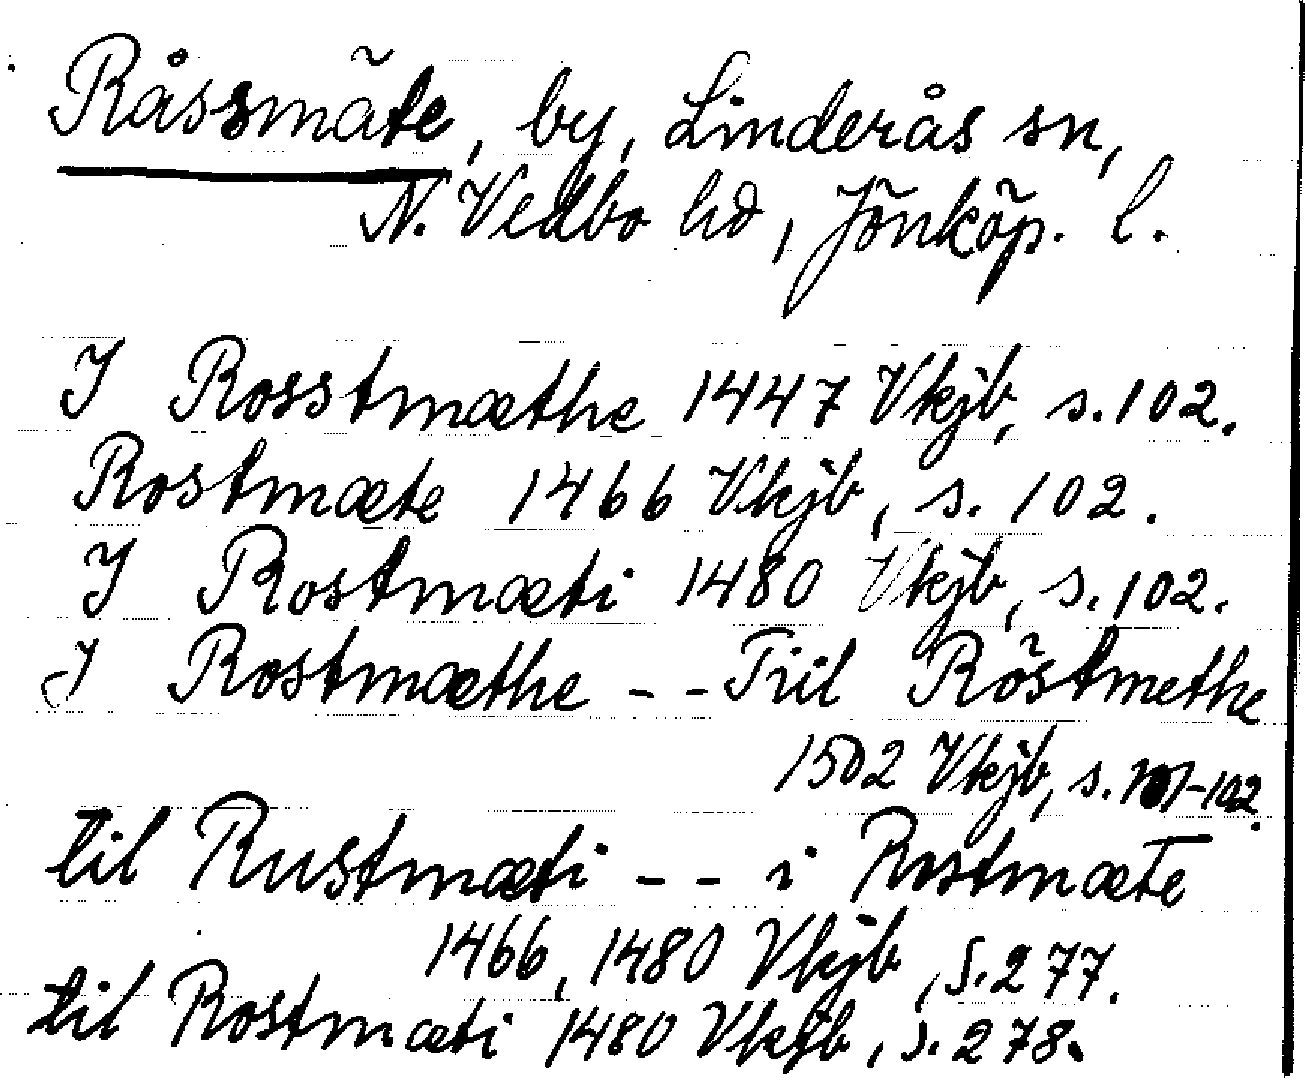 Råssmäte, by, Linderås sn,
N. Vedbo hd, Jönköp. l.
I Rosstmæthe 1447 Vkjb, s. 102.
Rostmæte 1466 Vkjb, s. 102.
I Rostmæti 1480 Vkjb, s. 102.
I Rostmæthe - - Tiil Röstmethe
1502 Vkjb, s. 101-102.
til Rustmæti - - i Rostmæte
1466, 1480 Vkjb, s. 277.
til Rostmæti 1480 Vkjb, s. 278.